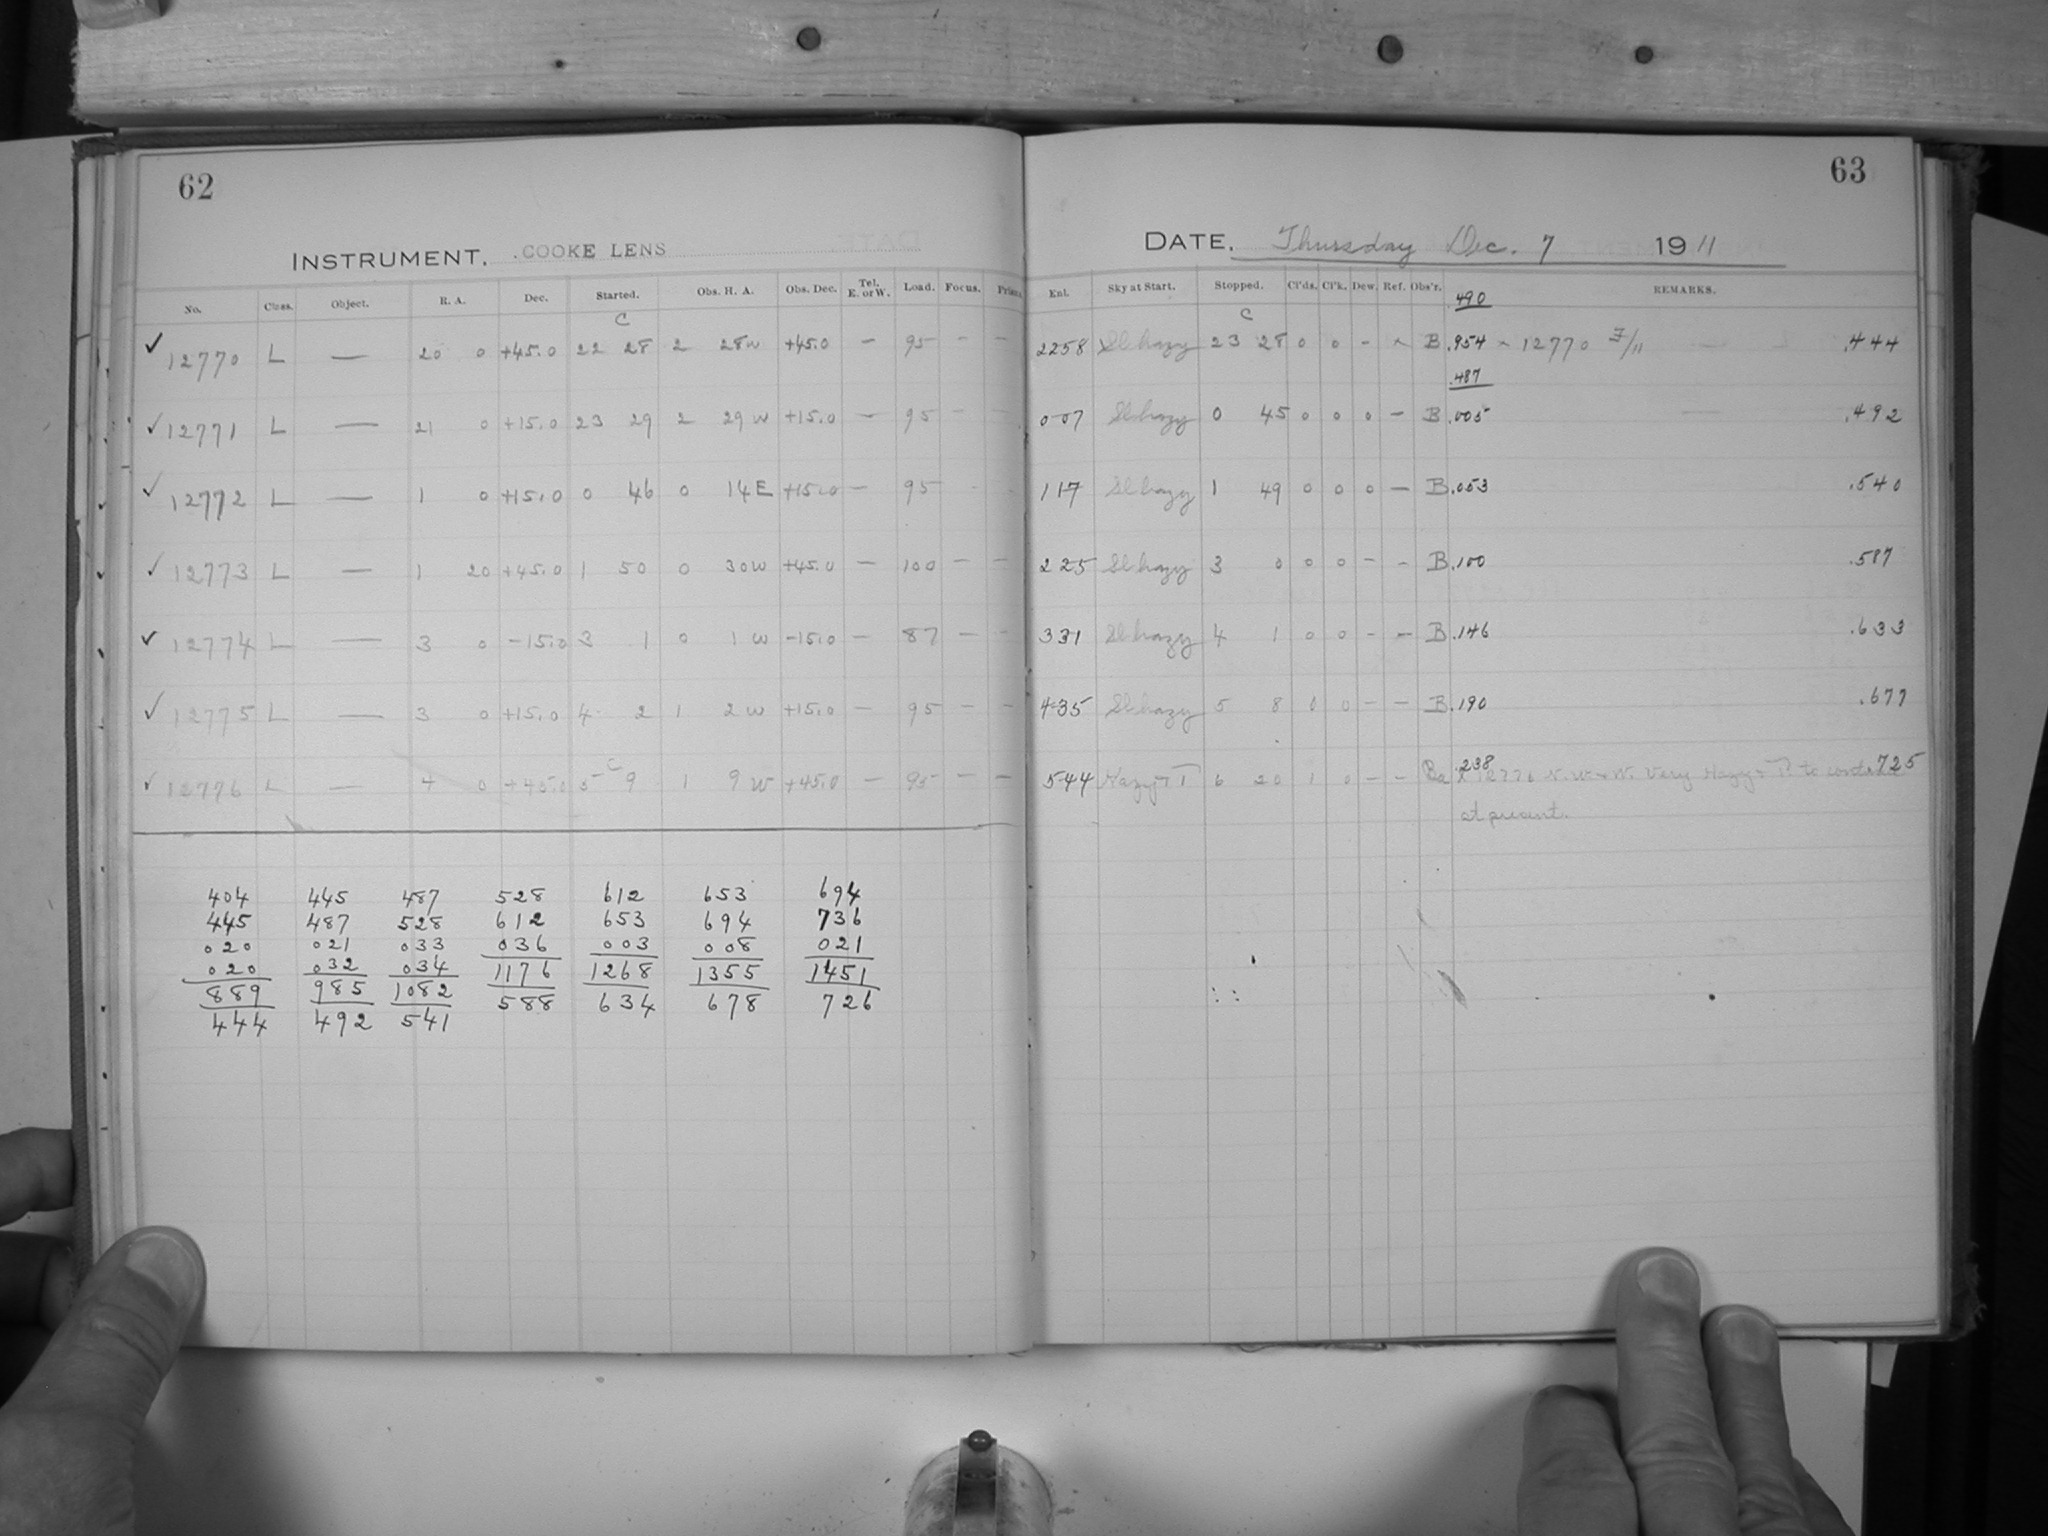 62
INSTRUMENT. COOKE LENS
No. Class. Object. R. A. Dec. Started. Obs. H. A. Obs. Dec. Tel. E. or W. Load. Focus. Prism
C
✓ 12770 L — 20 0 +45.0 22 28 2 28 W +45.0 — 95 – –
✓ 12771 L — 21 0 +15.0 23 29 2 29 W +15.0 — 95 – –
✓ 12772 L — 1 0 +15.0 0 46 0 14 E +15.0 — 95 – –
✓ 12773 L — 1 20 +45.0 1 50 0 30 W +45.0 — 100 – –
✓ 12774 L — 3 0 -15.0 3 1 0 1 W -15.0 — 87 – –
✓ 12775 L — 3 0 +15.0 4 2 1 2 W +15.0 — 95 – –
C
✓ 12776 L — 4 0 +45.0 5 9 1 9 W +45.0 — 95 – –
404 445 487 528 612 653 694
445 487 528 612 653 694 736
020 021 033 036 003 008 021
020 032 034 1176 1268 1355 1451
889 985 1082 588 634 678 726
444 492 541
63
DATE. Thursday Dec. 7 1911
Enl. Sky at Start. Stopped. Cl'ds. Cl'k. Dew. Ref. Obs'r. REMARKS.
.490
C
2258 Sl hazy 23 28 0 0 – × B .954 × 12770 F/11 .444
.487
007 Sl hazy 0 45 0 0 0 – B .005 .492
117 Sl hazy 1 49 0 0 0 – B .053 .540
225 Sl hazy 3 0 0 0 – – B .100 .587
331 Sl hazy 4 1 0 0 – – B .146 .633
435 Sl hazy 5 8 0 0 – – B .190 .677
.238
544 Hazy + T 6 20 1 0 – – Ba × 12776 N.W + W. Very Hazy + T to .725
at present.